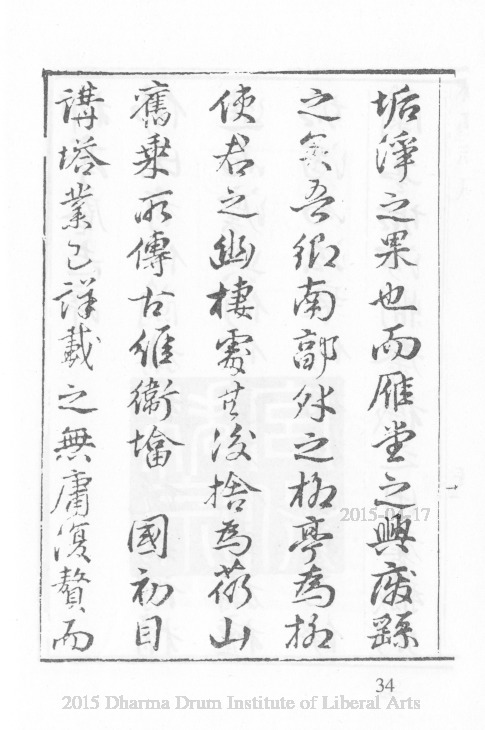 垢淨之果也而雁堂之興廢繇
之矣吾鄉南郭外之柳亭為柳
使君之幽棲處其後捨為山
舊乘所傳古維衛墖 國初目
講塔業已詳載之無庸復贅而
2015-04-17
34
2015 Dharma Drum Institute of Liberal Arts